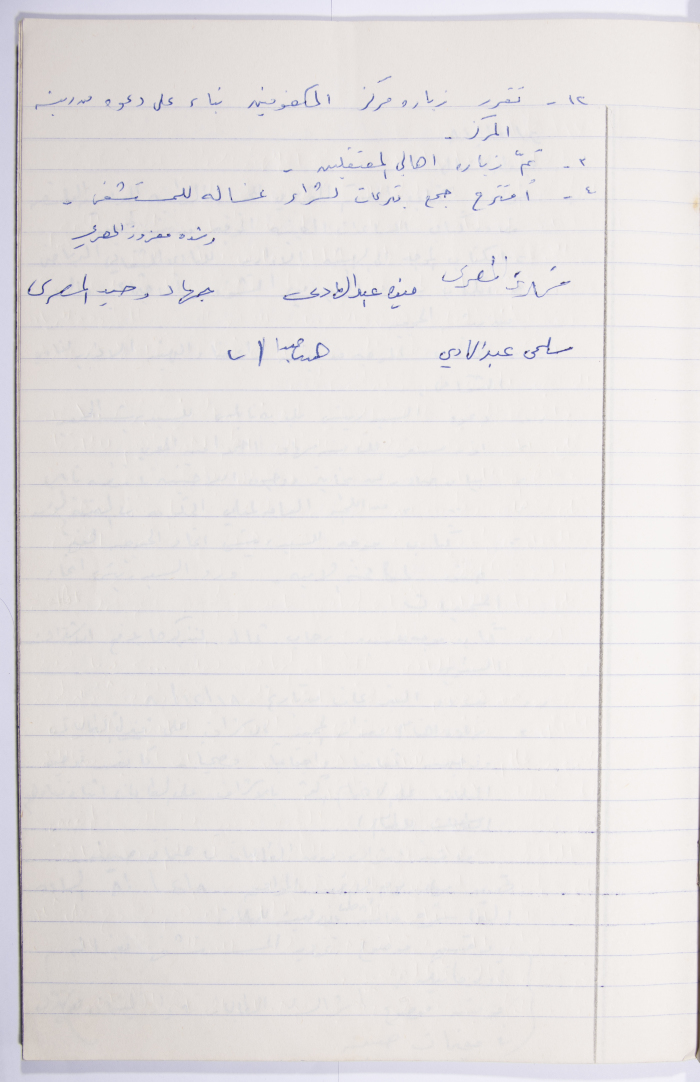 ١٢- تقرر زياره مركز المكفوفين بناء على دعوه من
المركز -
٣- تمّ زياره اهالي المعتقلين -
٤- أقترح جمع تبرعات لشراء غساله للمستشفى -
معزوز المصري
المصري عبد الهادي جهاد وحيد المصري
سلمى عبد الهادي